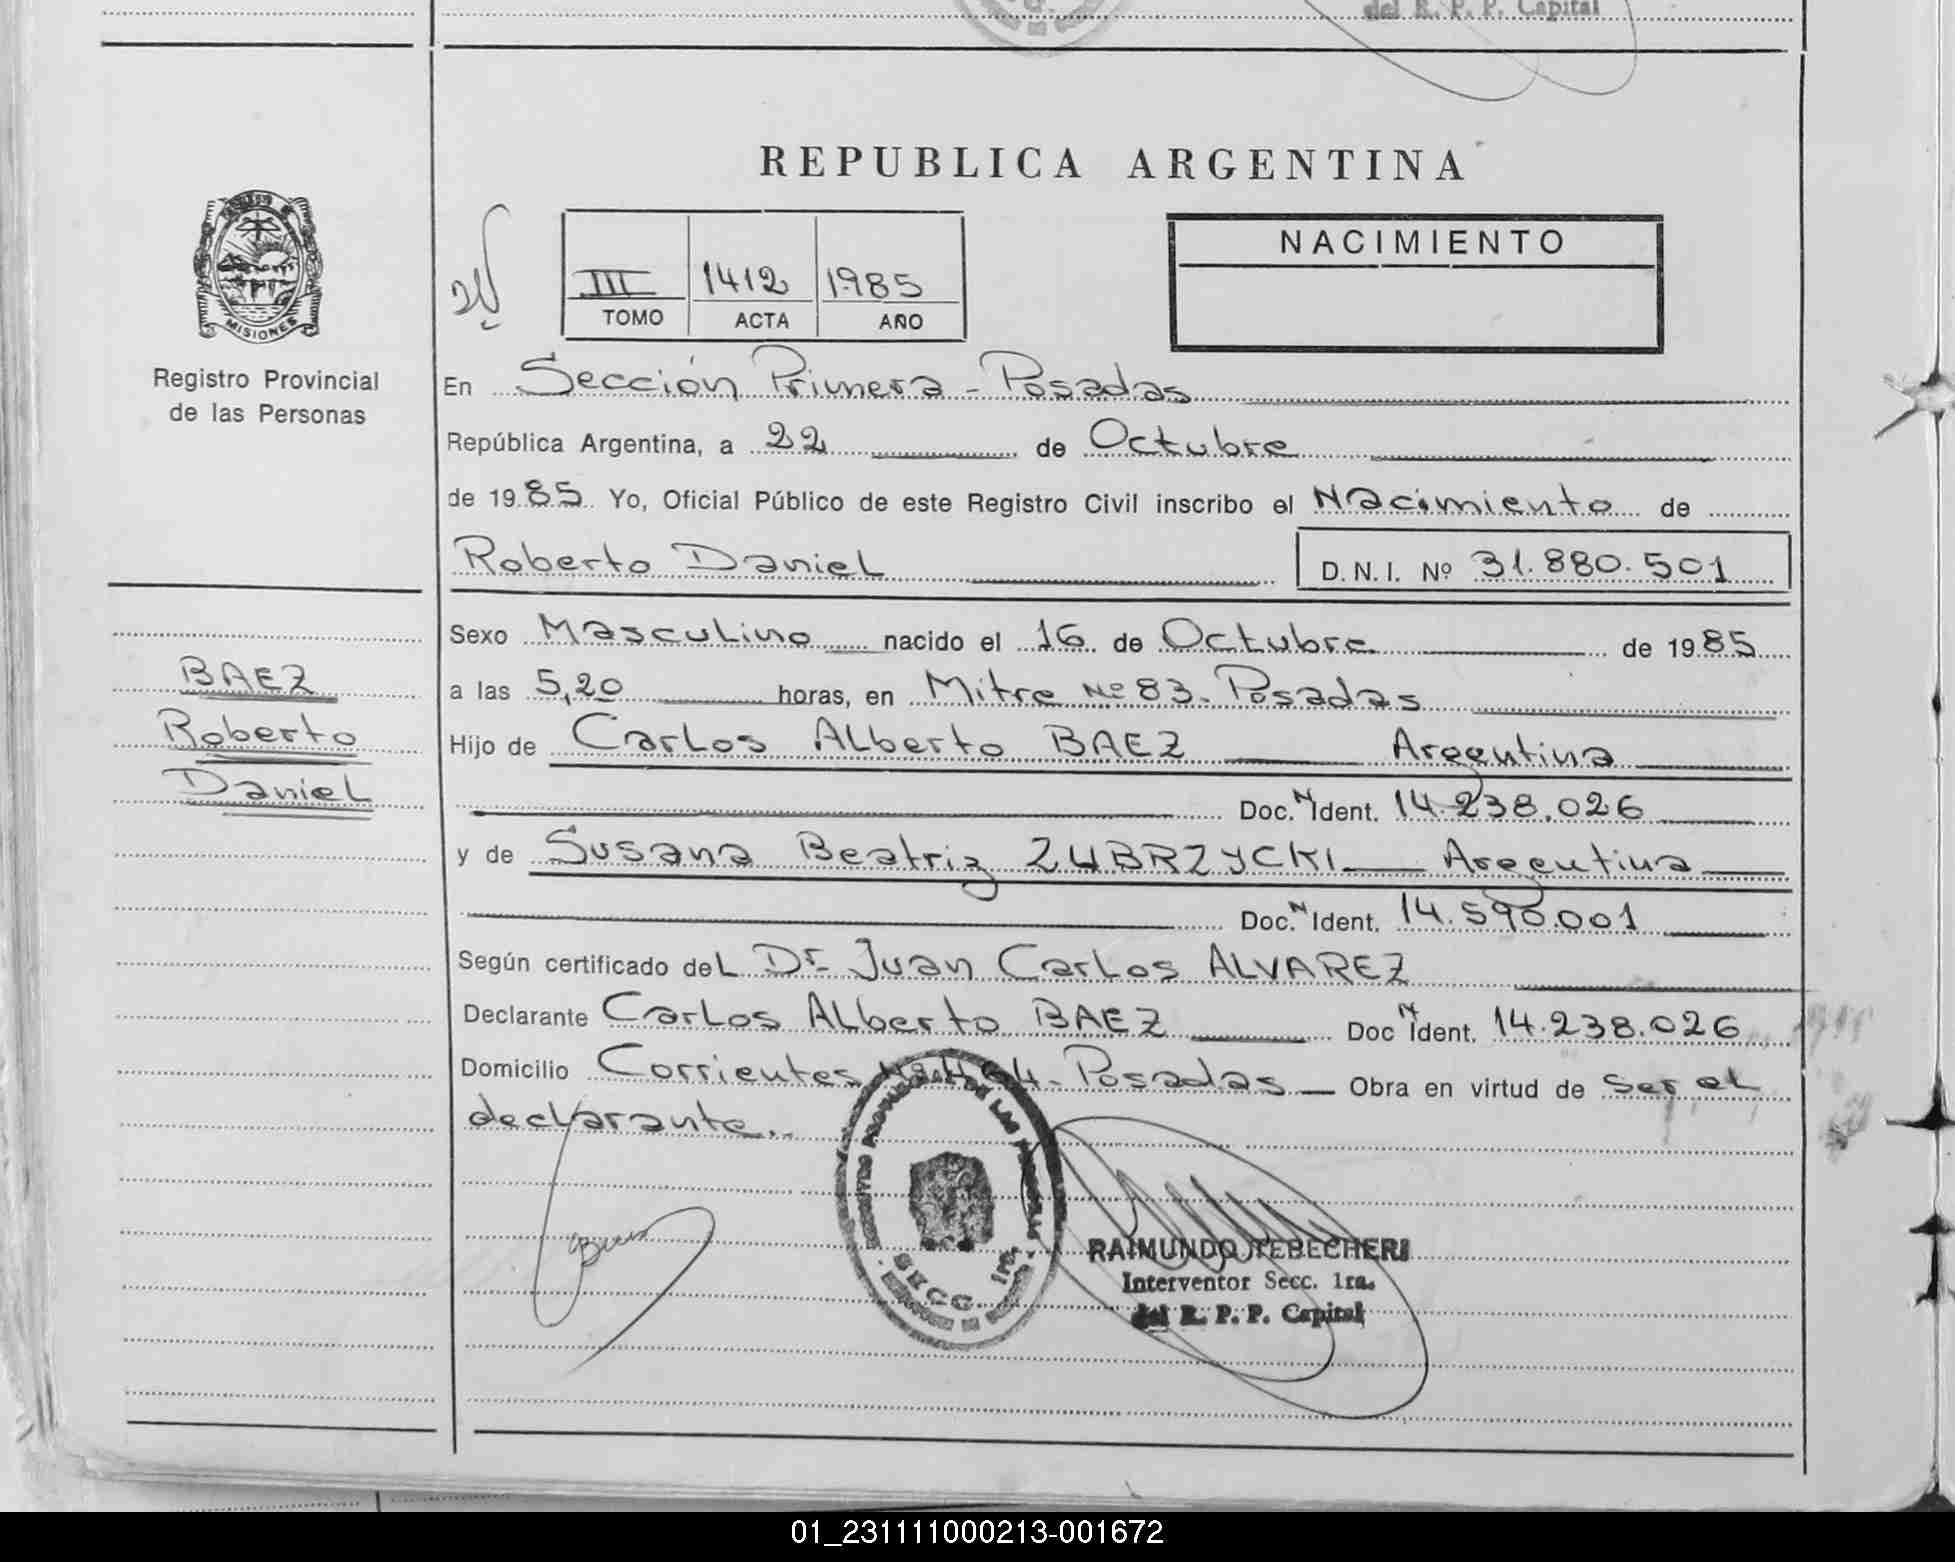 del R. P. P. Capital
REPUBLICA ARGENTINA
NACIMIENTO
III 1412 1985
TOMO ACTA AÑO
MISIONES
Registro Provincial
de las Personas
En Sección Primera - Posadas
República Argentina, a 22 de Octubre
de 1985 Yo, Oficial Público de este Registro Civil inscribo el Nacimiento de
Roberto Daniel D.N.I. Nº 31.880.501
Sexo Masculino nacido el 16 de Octubre de 1985
BAEZ
a las 5,20 horas, en Mitre Nº 83. Posadas
Roberto
Hijo de Carlos Alberto BAEZ Argentina
Daniel
Doc. N Ident. 14.238.026
y de Susana Beatriz ZUBRZYCKI Argentina
Doc. N Ident. 14.590.001
Según certificado del Dr. Juan Carlos ALVAREZ
Declarante Carlos Alberto BAEZ Doc N Ident. 14.238.026
Domicilio Corrientes Posadas Obra en virtud de ser el
declarante.
SECC. 1ra.
RAIMUNDO TEBECHERI
Interventor Secc. 1ra.
del R. P. P. Capital
01_231111000213-001672